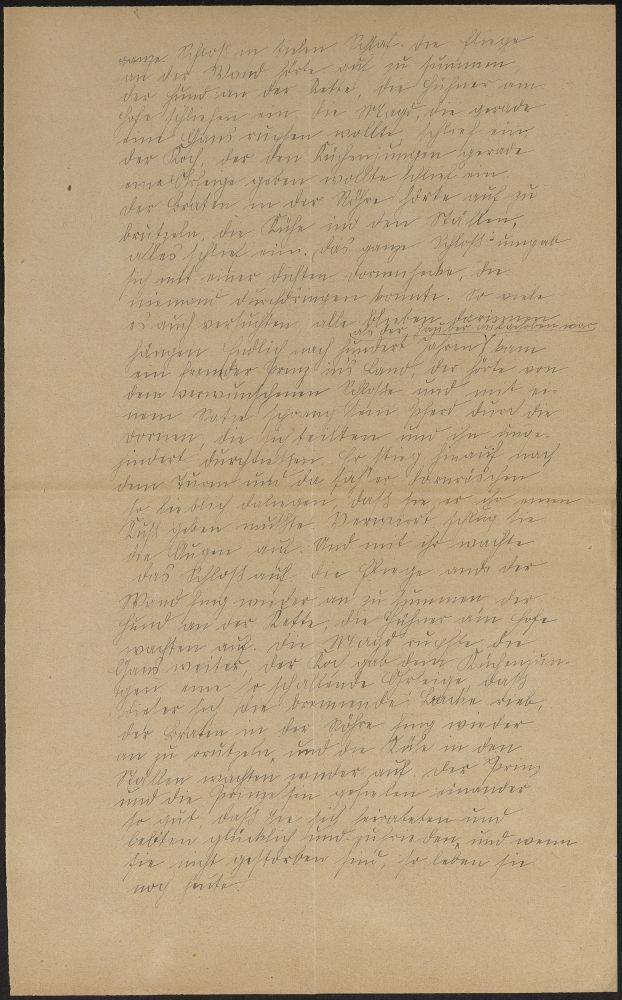 ganze Schloß in tiefen Schlaf. Die Fliege
an der Wand hörte auf zu summen,
der Hund an der Kette, die Hühner am
Hofe schliefen ein, die Magd, die gerade
eine Gans rupfen wollte, schlief ein,
der Koch, der den Küchenjungen gerade
eine Ohrfeige geben wollte schlief ein.
Der Braten in der Röhre hörte auf zu
brutzeln, die Kühe in den Ställen,
alles schlief ein. Das ganze Schloß umgab
sich mit einer dichten Dornenhecke, die
niemand durchdringen konnte. So viele
es auch versuchten, alle blieben darinnen
hängen. Endlich nach hundert Jahren, kam
als der Zauber war
ein fremder Prinz ins Land, der hörte von
dem verwunschenen Schlosse und mit ei-
nem Satze sprang sein Pferd durch die
Dornen, die sich teilten und ihn unge-
hindert durchließen. Er stieg hinauf nach
dem Turm und da sah er Dornröschen
so lieblich daliegen, daß er ihr einen
Kuß geben mußte. Verwirrt schlug sie
die Augen auf. Und mit ihr wachte
das Schloß auf, die Fliege an der
Wand fing wieder an zu summen, der
Hund an der Kette, die Hühner am Hofe
wachten auf. Die Magd rupfte die
Gans weiter, der Koch gab dem Küchenjun-
gen eine so schallende Ohrfeige, daß
dieser sich die brennende Backe rieb,
der Braten in der Röhre fing wieder
an zu brutzeln, und die Kühe in den
Ställen wachten wieder auf. Der Prinz
und die Prinzessin gefielen einander
so gut, daß sie sich heirateten und
lebten glücklich und zufrieden, und wenn
sie nicht gestorben sind, so leben sie
noch heute.